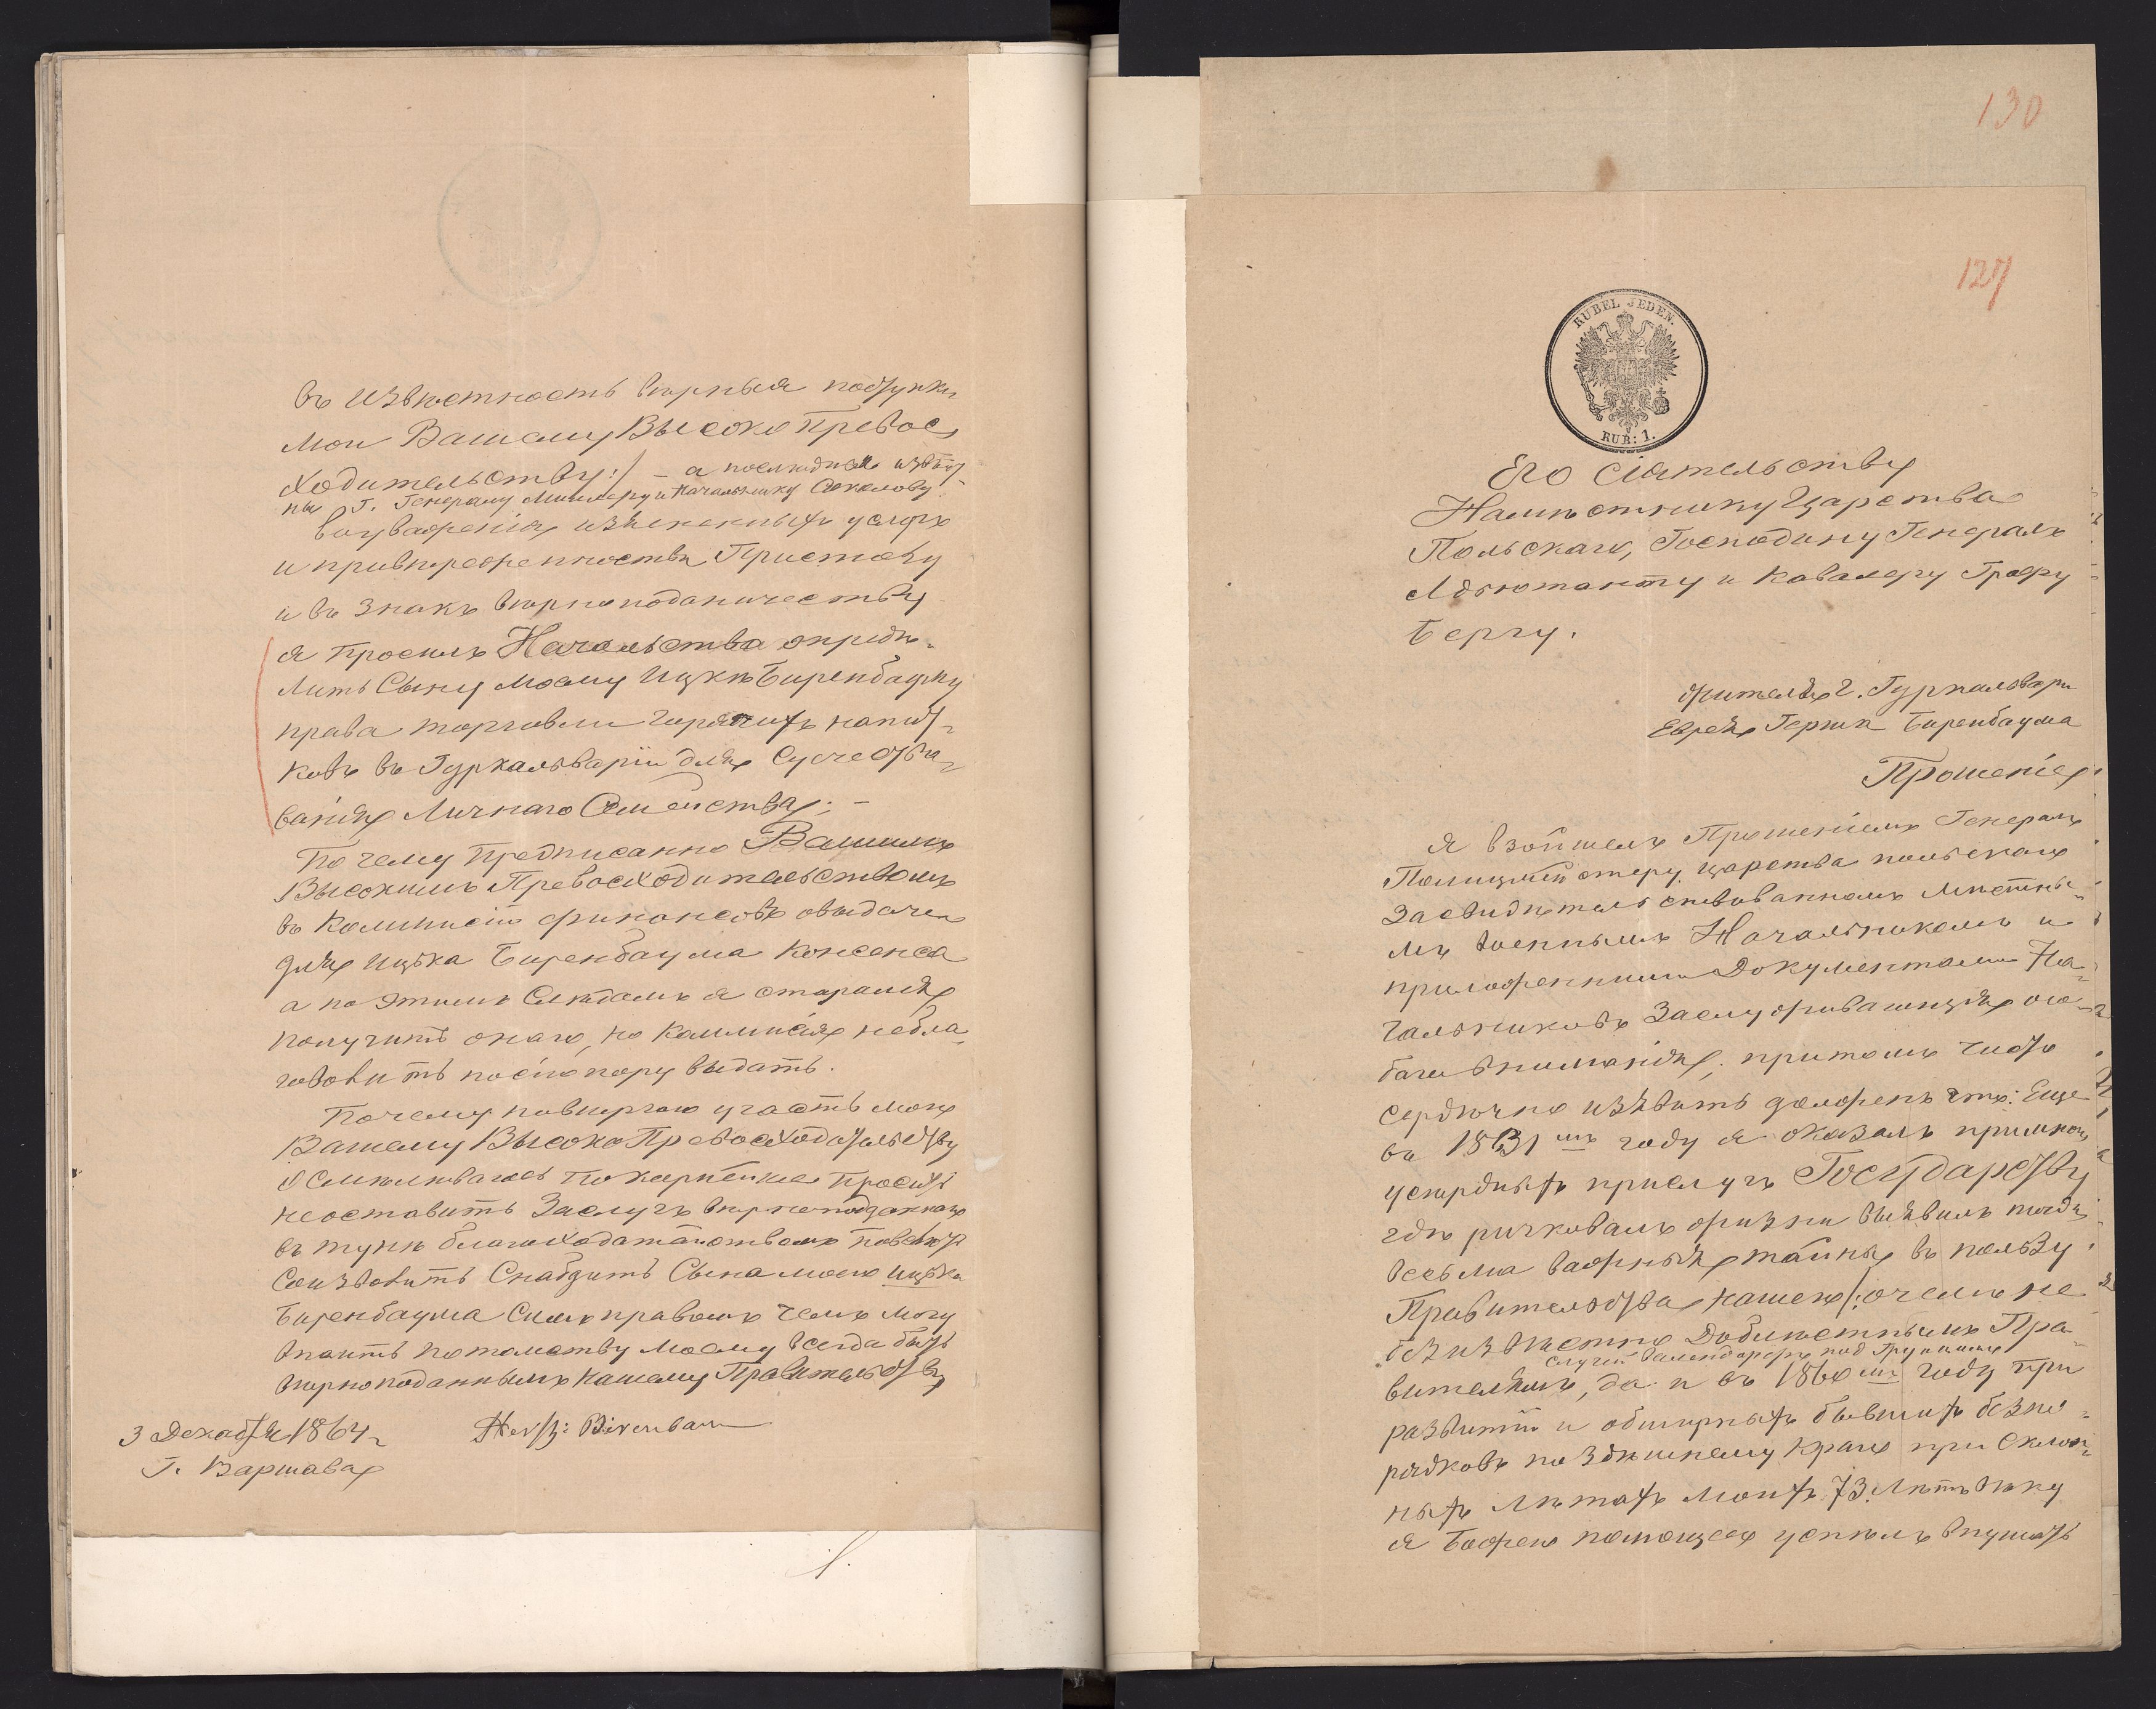 въ извѣстность вѣрныя поступки
мои Вашему Высоко Превос
ходительству :/ – а последнее извѣст
ны Г. Генералу Миллеру и Начальнику Соколову
и привѣрженности Престолу
и въ знакъ вѣрноподаничеству
я просилъ Начальства опредѣ-
лить Сыну моему Ицкѣ Биренбауму
права торговли горячихъ напит-
ковъ въ Гуркальваріи для Сусчество-
ванія Личнаго Семейства; –
По чему предписанно Вашимъ
Высокимъ Превосходительствомъ
въ Коммисію финонсовъ овыдачи
для Ицька Биренбаума Консенса
а по этимъ Слѣдамъ я старался
получить онаго, но Коммисія небла-
говолитъ посію пору выдать.
Почему повѣргаю участь мою
Вашему Высоко Превосходательству
Осмѣливаюсь Покорнейше просить
неоставить Заслугъ вѣрноподданнаго
въ тунѣ благоходатайствомъ
Соизволить Снабдить Сына моего Ицька
Биренбаума Симъ правомъ чемъ могу
внаить потомству моему всегда быть
вѣрноподаннымъ нашему Правительству
3 Декабря 1864 г
Г. Варшава
Hersz: Birenbaum
130
127
RUBEL JEDEN.
RUB: 1.
Его Сіятельству
Намѣстнику Царства
Польскаго, Господину Генералъ
Адъютанту и Кавалеру Графу
Бергу.
жителя г. Гуркальвари
Еврея Герша Биренбаума
Прошеніе
я взойшелъ Прошеніемъ Генералъ
Полицмейстеру Царства польскаго
Засвидѣтельствованномъ мѣстны-
мъ военнымъ Начальникомъ и
приложенними Документами На-
чальниковъ Заслуживающія осо-
баго вниманія; притомъ чисто
сердечно изъявить долженъ что: Еще
въ 1831 мъ году я оказалъ примѣрно
усердныхъ прислугъ Государству
гдѣ ричковалъ жизни выявилъ тогда
весьма важныя тайны въ пользу
Правительства нашего /: очемъ не
безизвѣстно Доблѣстнымъ Пра-
вителямъ, да и въ 1860 мъ году при
развитіи и обширныхъ бывшихъ безпо-
рядковъ по Здѣшнему Краю при Склон-
ныхъ лѣтахъ моихъ 73 лѣтъ вѣку
я Божею помощею успѣлъ внушать